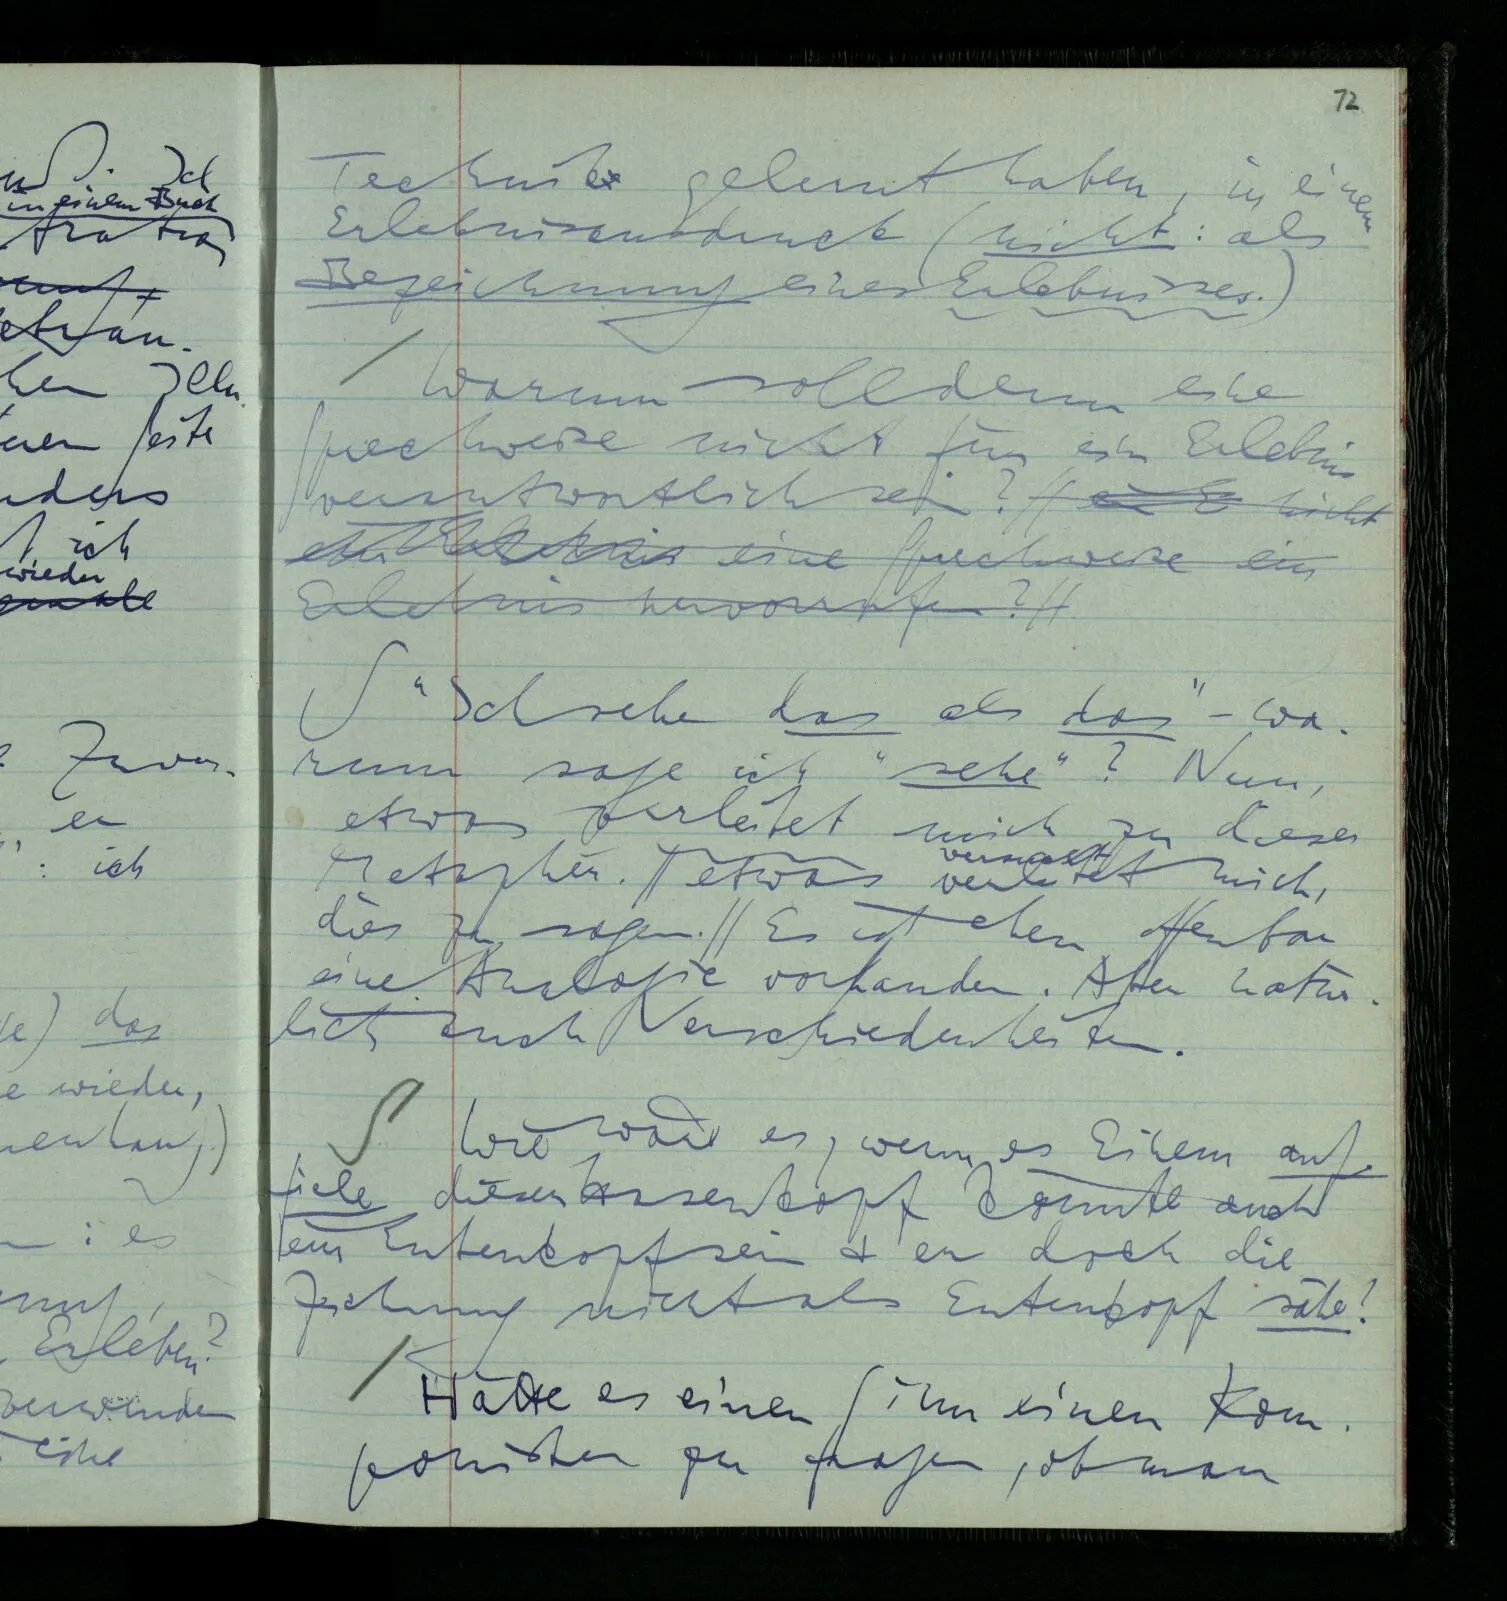 Ich
in einem Buch
hen Illu.
feste
nders
ich
wieder
Zuver.
er
: ich
das
e wieder,
: es
Erleben?
verwenden
72
Technik gelernt haben, in einen
Erlebnisausdruck (nicht: als
Bezeichnung eines Erlebnisses.)
Warum soll denn eine
Sprechweise nicht für ein Erlebnis
verantwortlich sein? // ein E nicht
ein Erlebnis eine Sprechweise ein
Erlebnis hervorrufen? //
S "Ich sehe das als das" – wa-
rum sage ich "sehe"? Nun,
etwas verleitet mich zu dieser
Metapher. // etwas verleitet mich,
dies zu sagen. // Es ist eben offenbar
eine Analogie vorhanden. Aber natür-
lich auch Verschiedenheiten.
S Wie wäre es, wenn es Einem auf-
fiele dieser Hasenkopf könnte auch
ein Entenkopf sein & er doch die
Zeichnung nicht als Entenkopf sähe!
Hätte es einen Sinn einen Kom-
ponisten zu fragen, ob man